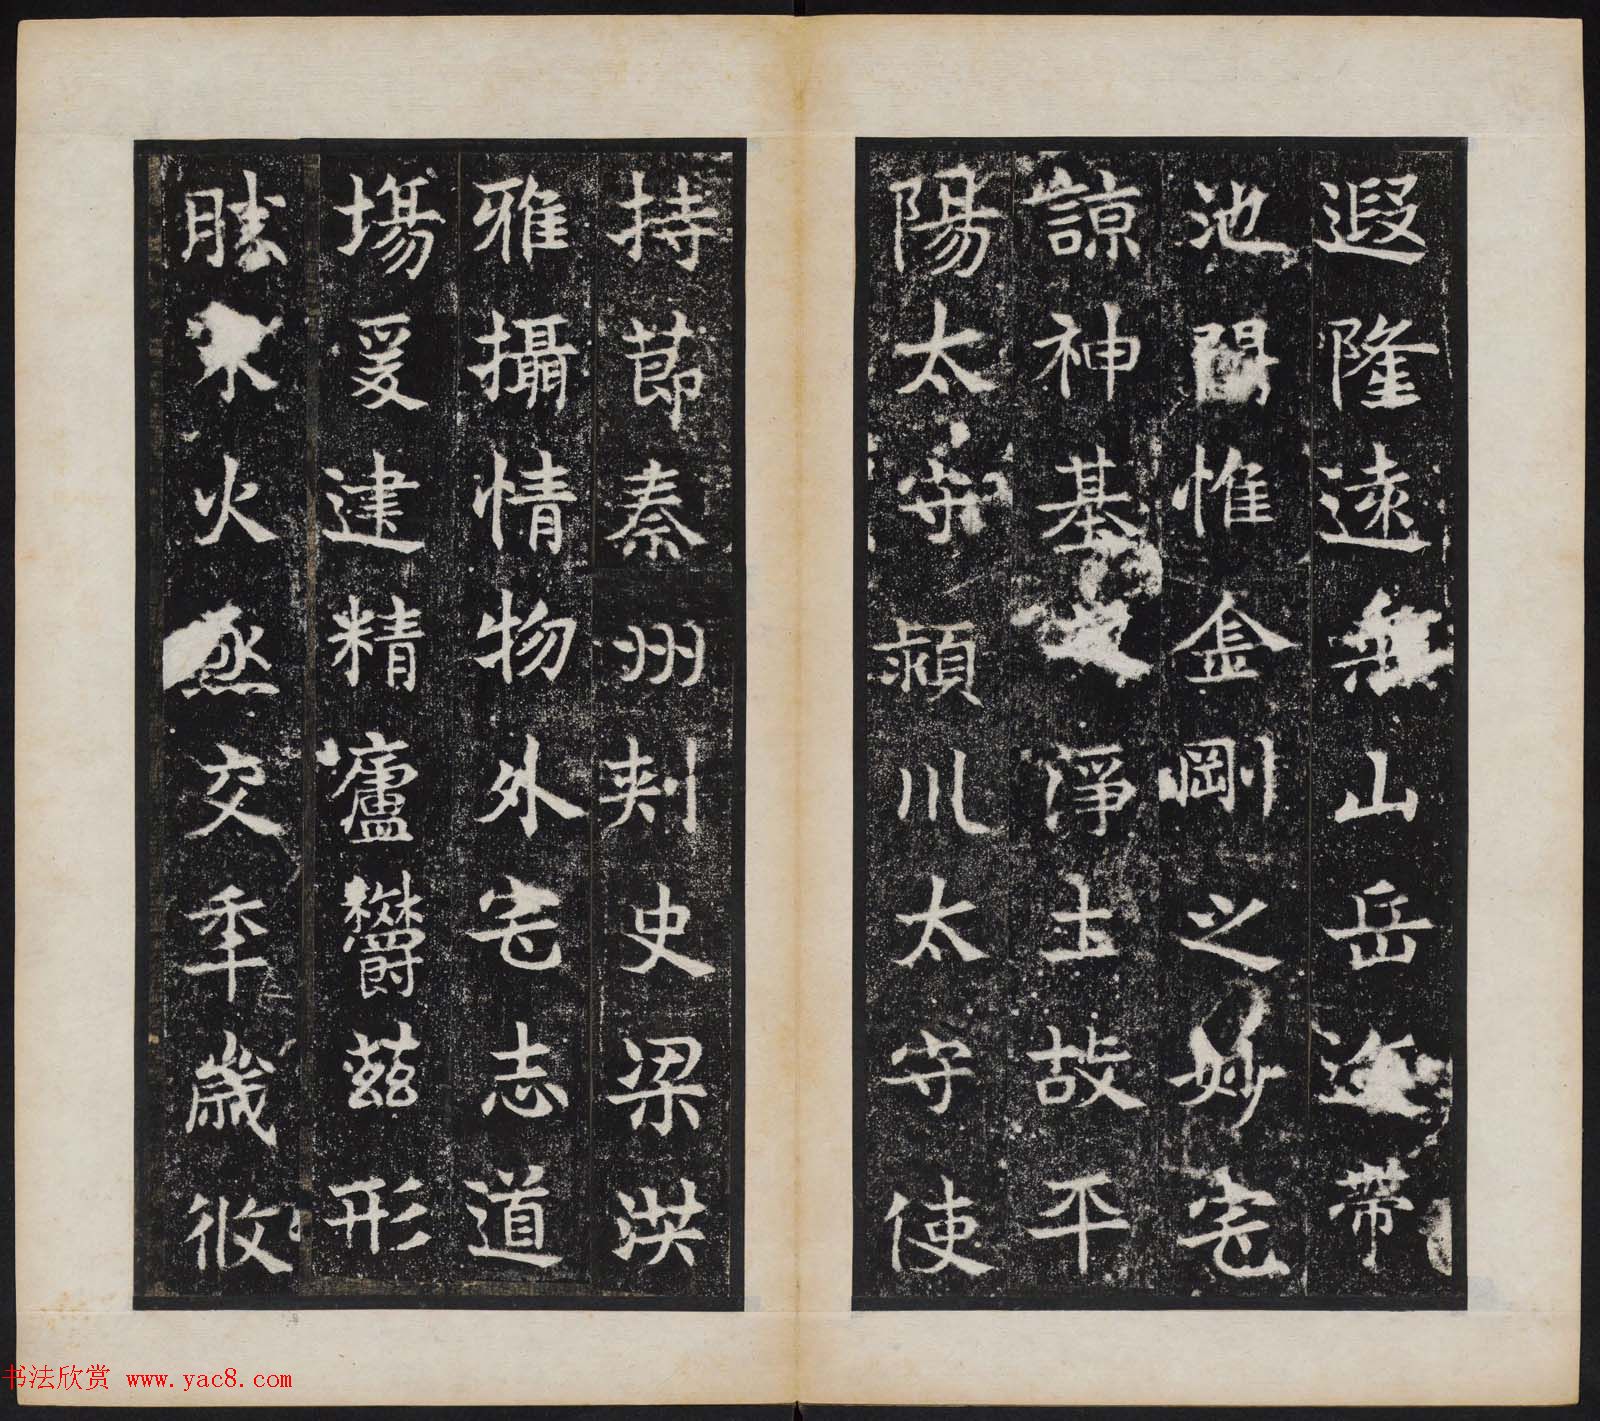 遐隆遠山岳帶
池惟金剛之妙宅
諒神基淨土故平
陽太守潁川太守使
持節秦州刾史梁洪
雅攝情物外宅志道
塲爰建精廬欝茲形
勝火烝交秊歲攸
书法欣赏 www.yac8.com